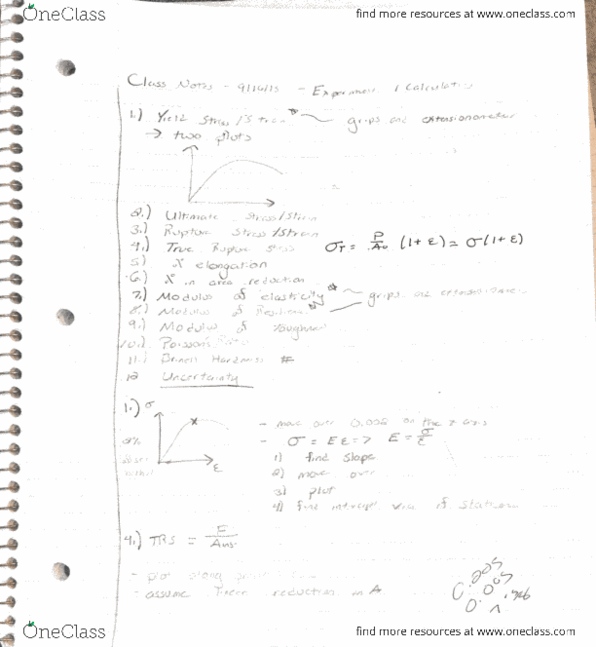 OneClass
find more resources at www.oneclass.com
Class Notes - 9/16/15 - Experiment 1 Calculations
1.) Yield Stress/Strain * grips and extensionometer
→ two plots
2.) Ultimate Stress/Strain
3.) Rupture Stress/Strain
4.) True Rupture Stress σT = P/Ao (1+ε) = σ(1+ε)
5) % elongation
6.) % in area reduction
7.) Modulus of elasticity * grips and extensionometer
8.) Modulus of Resilience *
9.) Modulus of toughness
10.) Poisson Ratio
11.) Brinell Hardness #
12 Uncertainty
1.) σ
ε
- move over 0.002 on the x axis
- σ = Eε => E = σ/ε
1) find slope
2) move over
3) plot
4) find intercept
4.) TRS = F/Ans.
- plot along
- assume linear reduction in A
OneClass
find more resources at www.oneclass.com